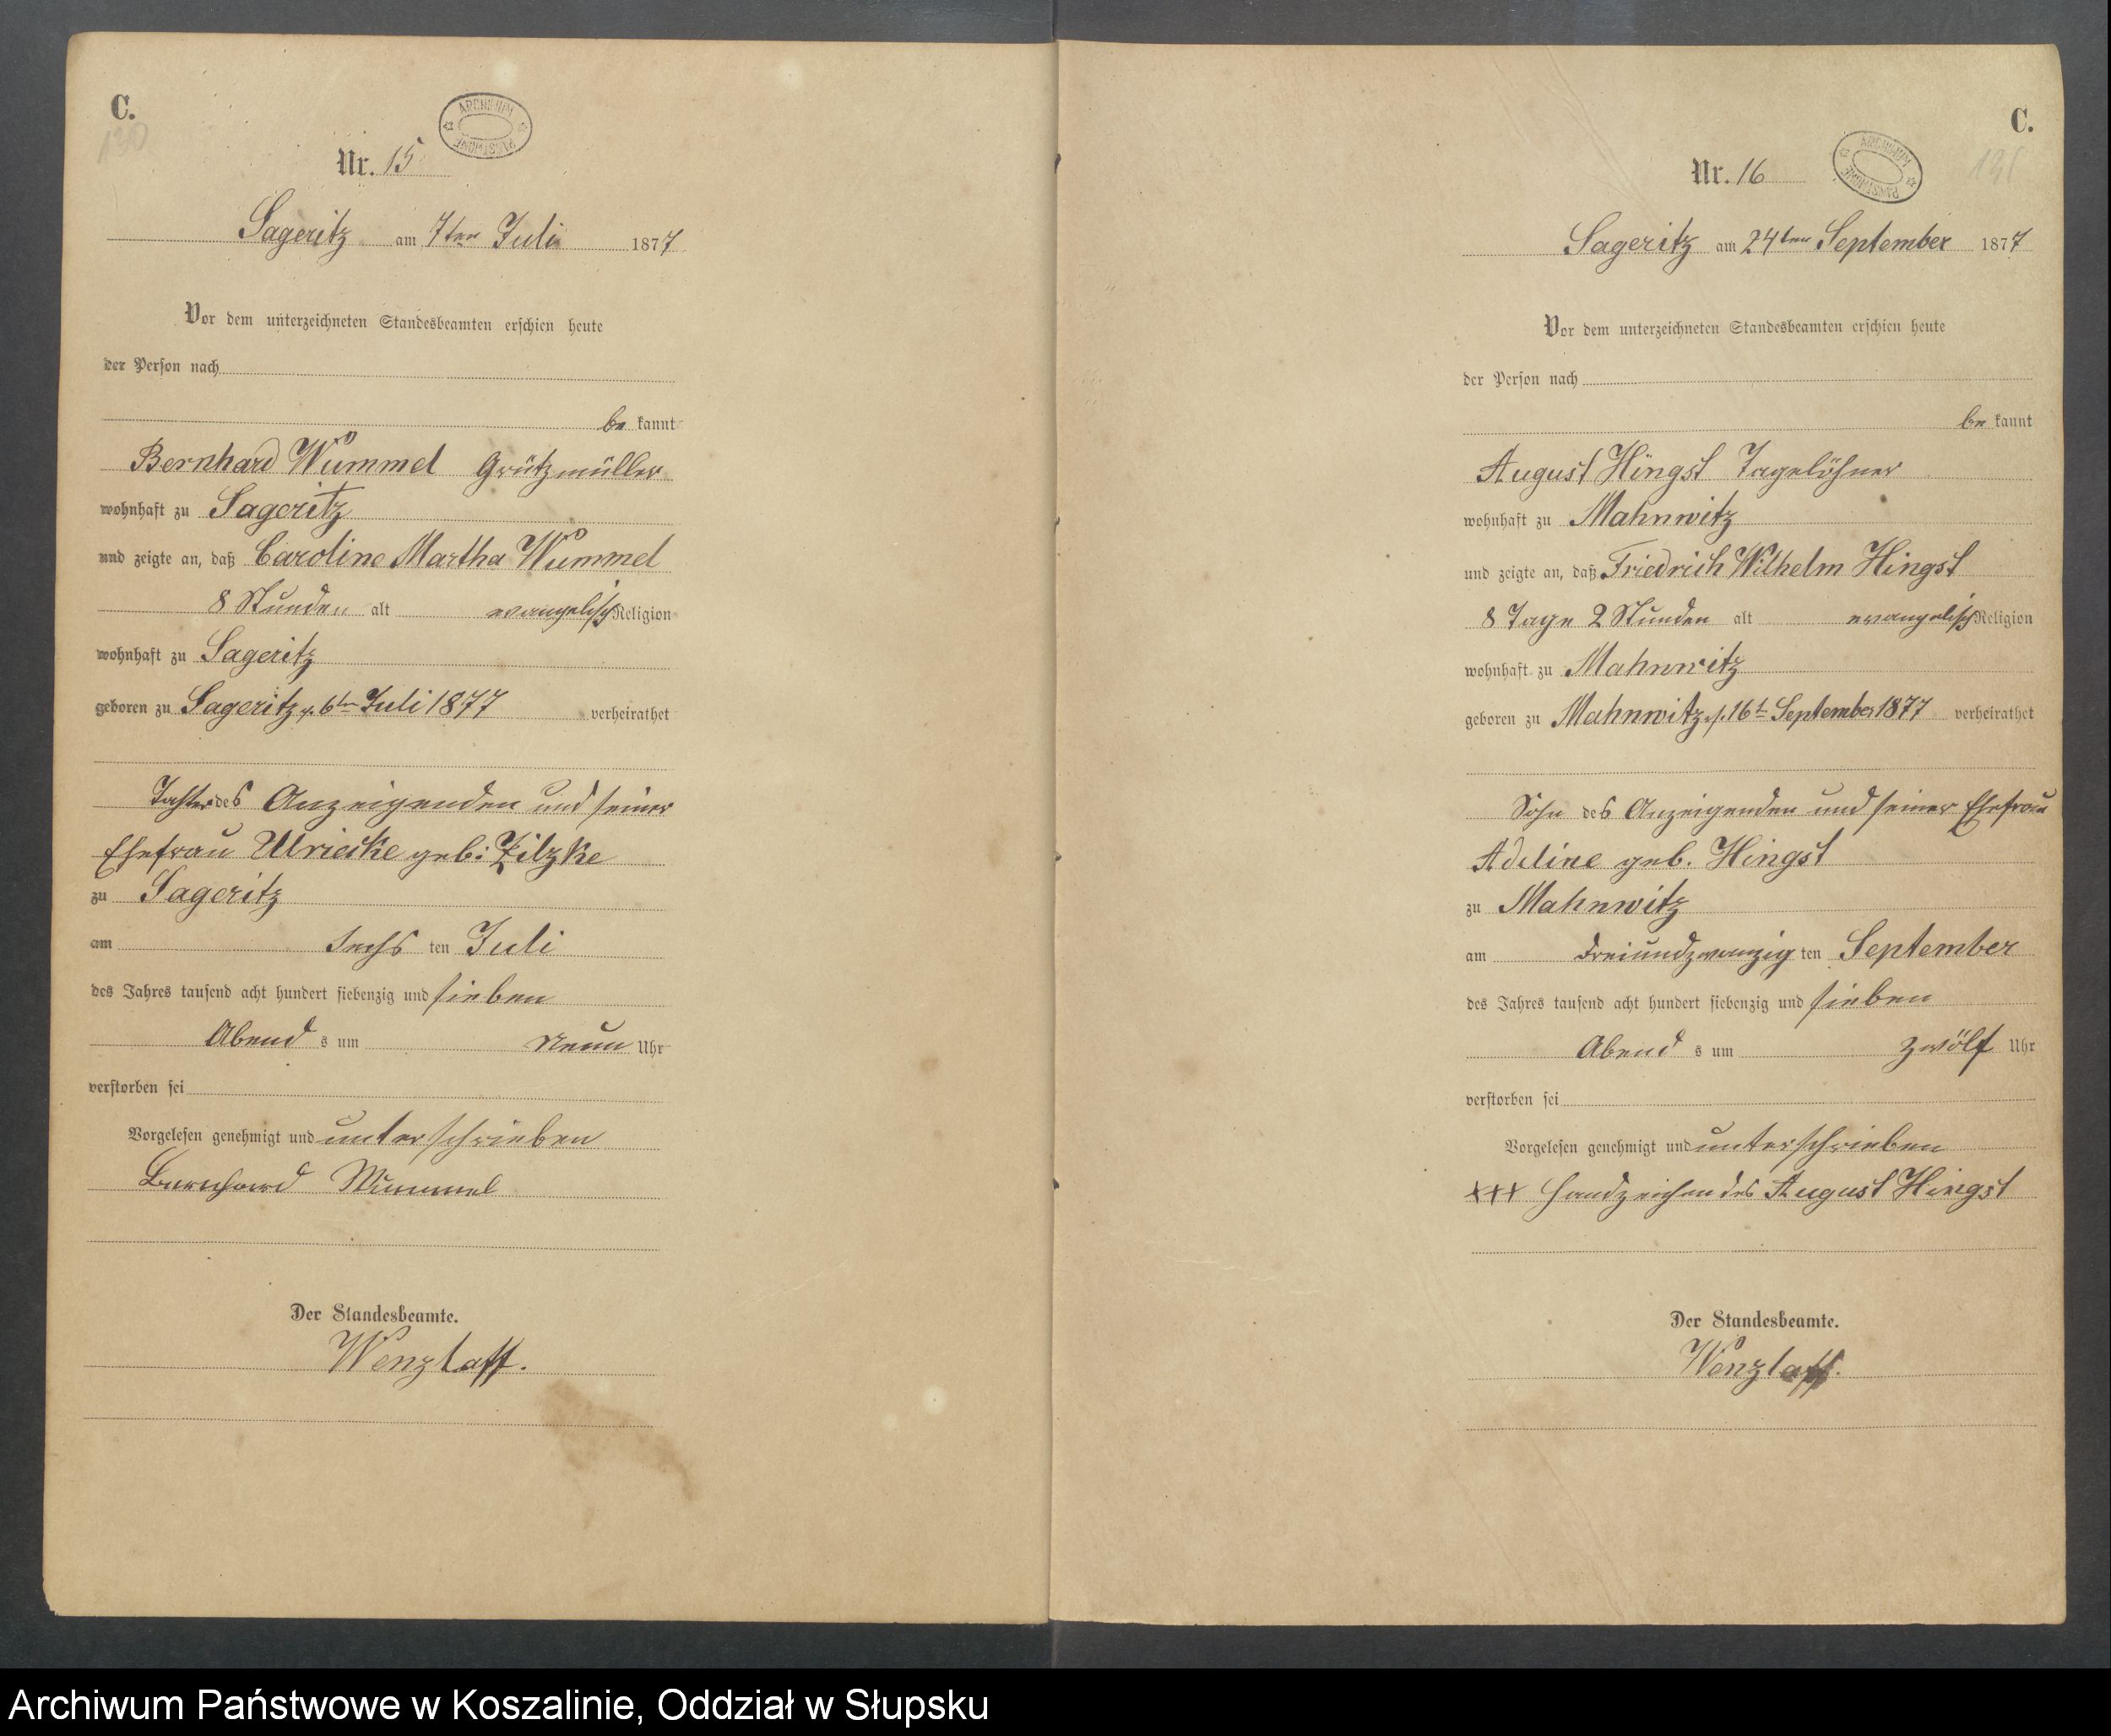 C.
130
ARCHIWUM PAŃSTWOWE
Nr. 15
Sageritz am 7ten Juli 1877
Vor dem unterzeichneten Standesbeamten erschien heute
der Person nach
be kannt
Bernhard Wummel Grützmüller
wohnhaft zu Sageritz
und zeigte an, daß Caroline Martha Wummel
8 Stunden alt evangelisch Religion
wohnhaft zu Sageritz
geboren zu Sageritz d. 6ten Juli 1877 verheirathet
Tochter des Anzeigenden und seiner
Ehefrau Ulriecke geb: Zilzke
zu Sageritz
am Sechs ten Juli
des Jahres tausend acht hundert siebenzig und sieben
Abend s um Neun Uhr
verstorben sei
Vorgelesen genehmigt und unterschrieben
Bernhard Wummel
Der Standesbeamte.
Wenzlaff.
C.
131
ARCHIWUM PAŃSTWOWE
Nr. 16
Sageritz am 24ten September 1877
Vor dem unterzeichneten Standesbeamten erschien heute
der Person nach
be kannt
August Hingst Tagelöhner
wohnhaft zu Mahnwitz
und zeigte an, daß Friedrich Wilhelm Hingst
8 Tage 2 Stunden alt evangelisch Religion
wohnhaft zu Mahnwitz
geboren zu Mahnwitz d. 16t September 1877 verheirathet
Sohn des Anzeigenden und seiner Ehefrau
Adeline geb. Hingst
zu Mahnwitz
am Dreiundzwanzig ten September
des Jahres tausend acht hundert siebenzig und sieben
Abend s um zwölf Uhr
verstorben sei
Vorgelesen genehmigt und unterschrieben
+++ Handzeichen des August Hingst
Der Standesbeamte.
Wenzlaff.
Archiwum Państwowe w Koszalinie, Oddział w Słupsku